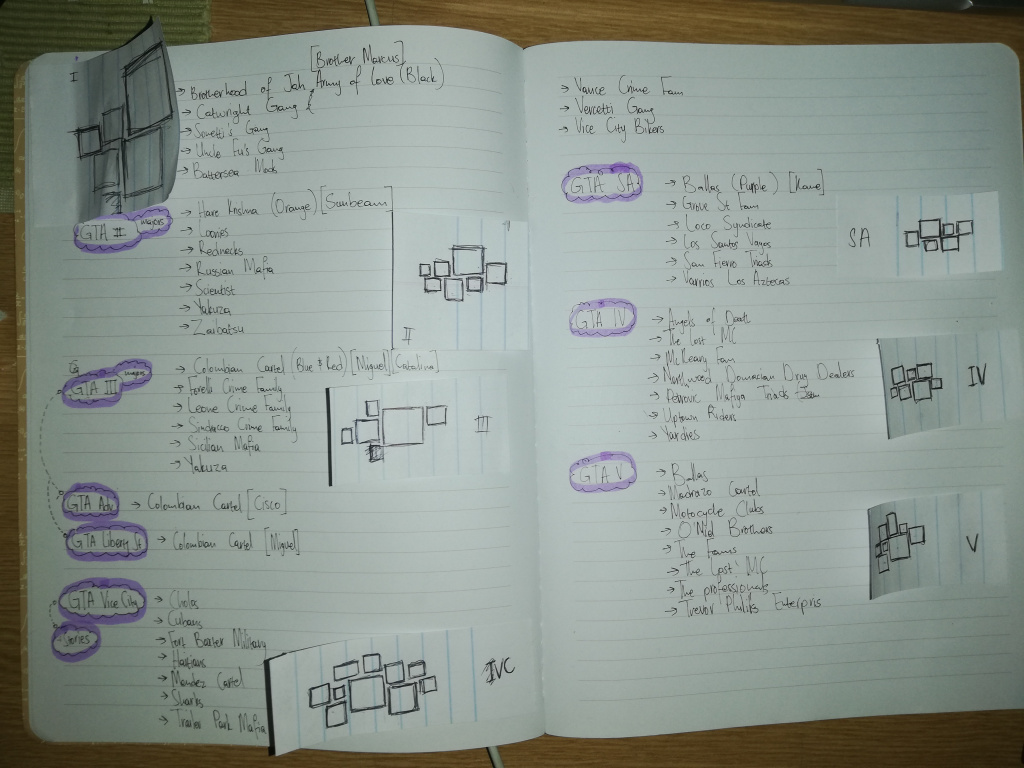 I
[Brother Marcus]
→ Brotherhood of Jah Army of Love (Black)
→ Catwright Gang
→ Sonetti's Gang
→ Uncle Fu's Gang
→ Battersea Mods
GTA II majors
→ Hare Krishna (Orange) [Sunbeam]
→ Loonies
→ Rednecks
→ Russian Mafia
→ Scientist
→ Yakuza
→ Zaibatsu
II
GTA III majors
→ Colombian Cartel (Blue & Red) [Miguel] [Catalina]
→ Forelli Crime Family
→ Leone Crime Family
→ Sindacco Crime Family
→ Sicilian Mafia
→ Yakuza
III
GTA Adv → Colombian Cartel [Cisco]
GTA Liberty St → Colombian Cartel [Miguel]
GTA Vice City
+ Stories
→ Cholos
→ Cubans
→ Fort Baxter Military
→ Haitians
→ Mendez Cartel
→ Sharks
→ Trailer Park Mafia
IVC
→ Vance Crime Fam
→ Vercetti Gang
→ Vice City Bikers
GTA SA
→ Ballas (Purple) [Kane]
→ Grove St Fam
→ Loco Syndicate
→ Los Santos Vagos
→ San Fierro Triads
→ Varrios Los Aztecas
SA
GTA IV
→ Angels of Death
→ The Lost MC
→ McReary Fam
→ Northwood Domacian Drug Dealers
→ Mafiya Triads
→ Uptown Riders
→ Yardies
IV
GTA V
→ Ballas
→ Madrazo Cartel
→ Motorcycle Clubs
→ O'Neil Brothers
→ The Fams
→ The Lost MC
→ The professionals
→ Trevor Philips Enterpris
V